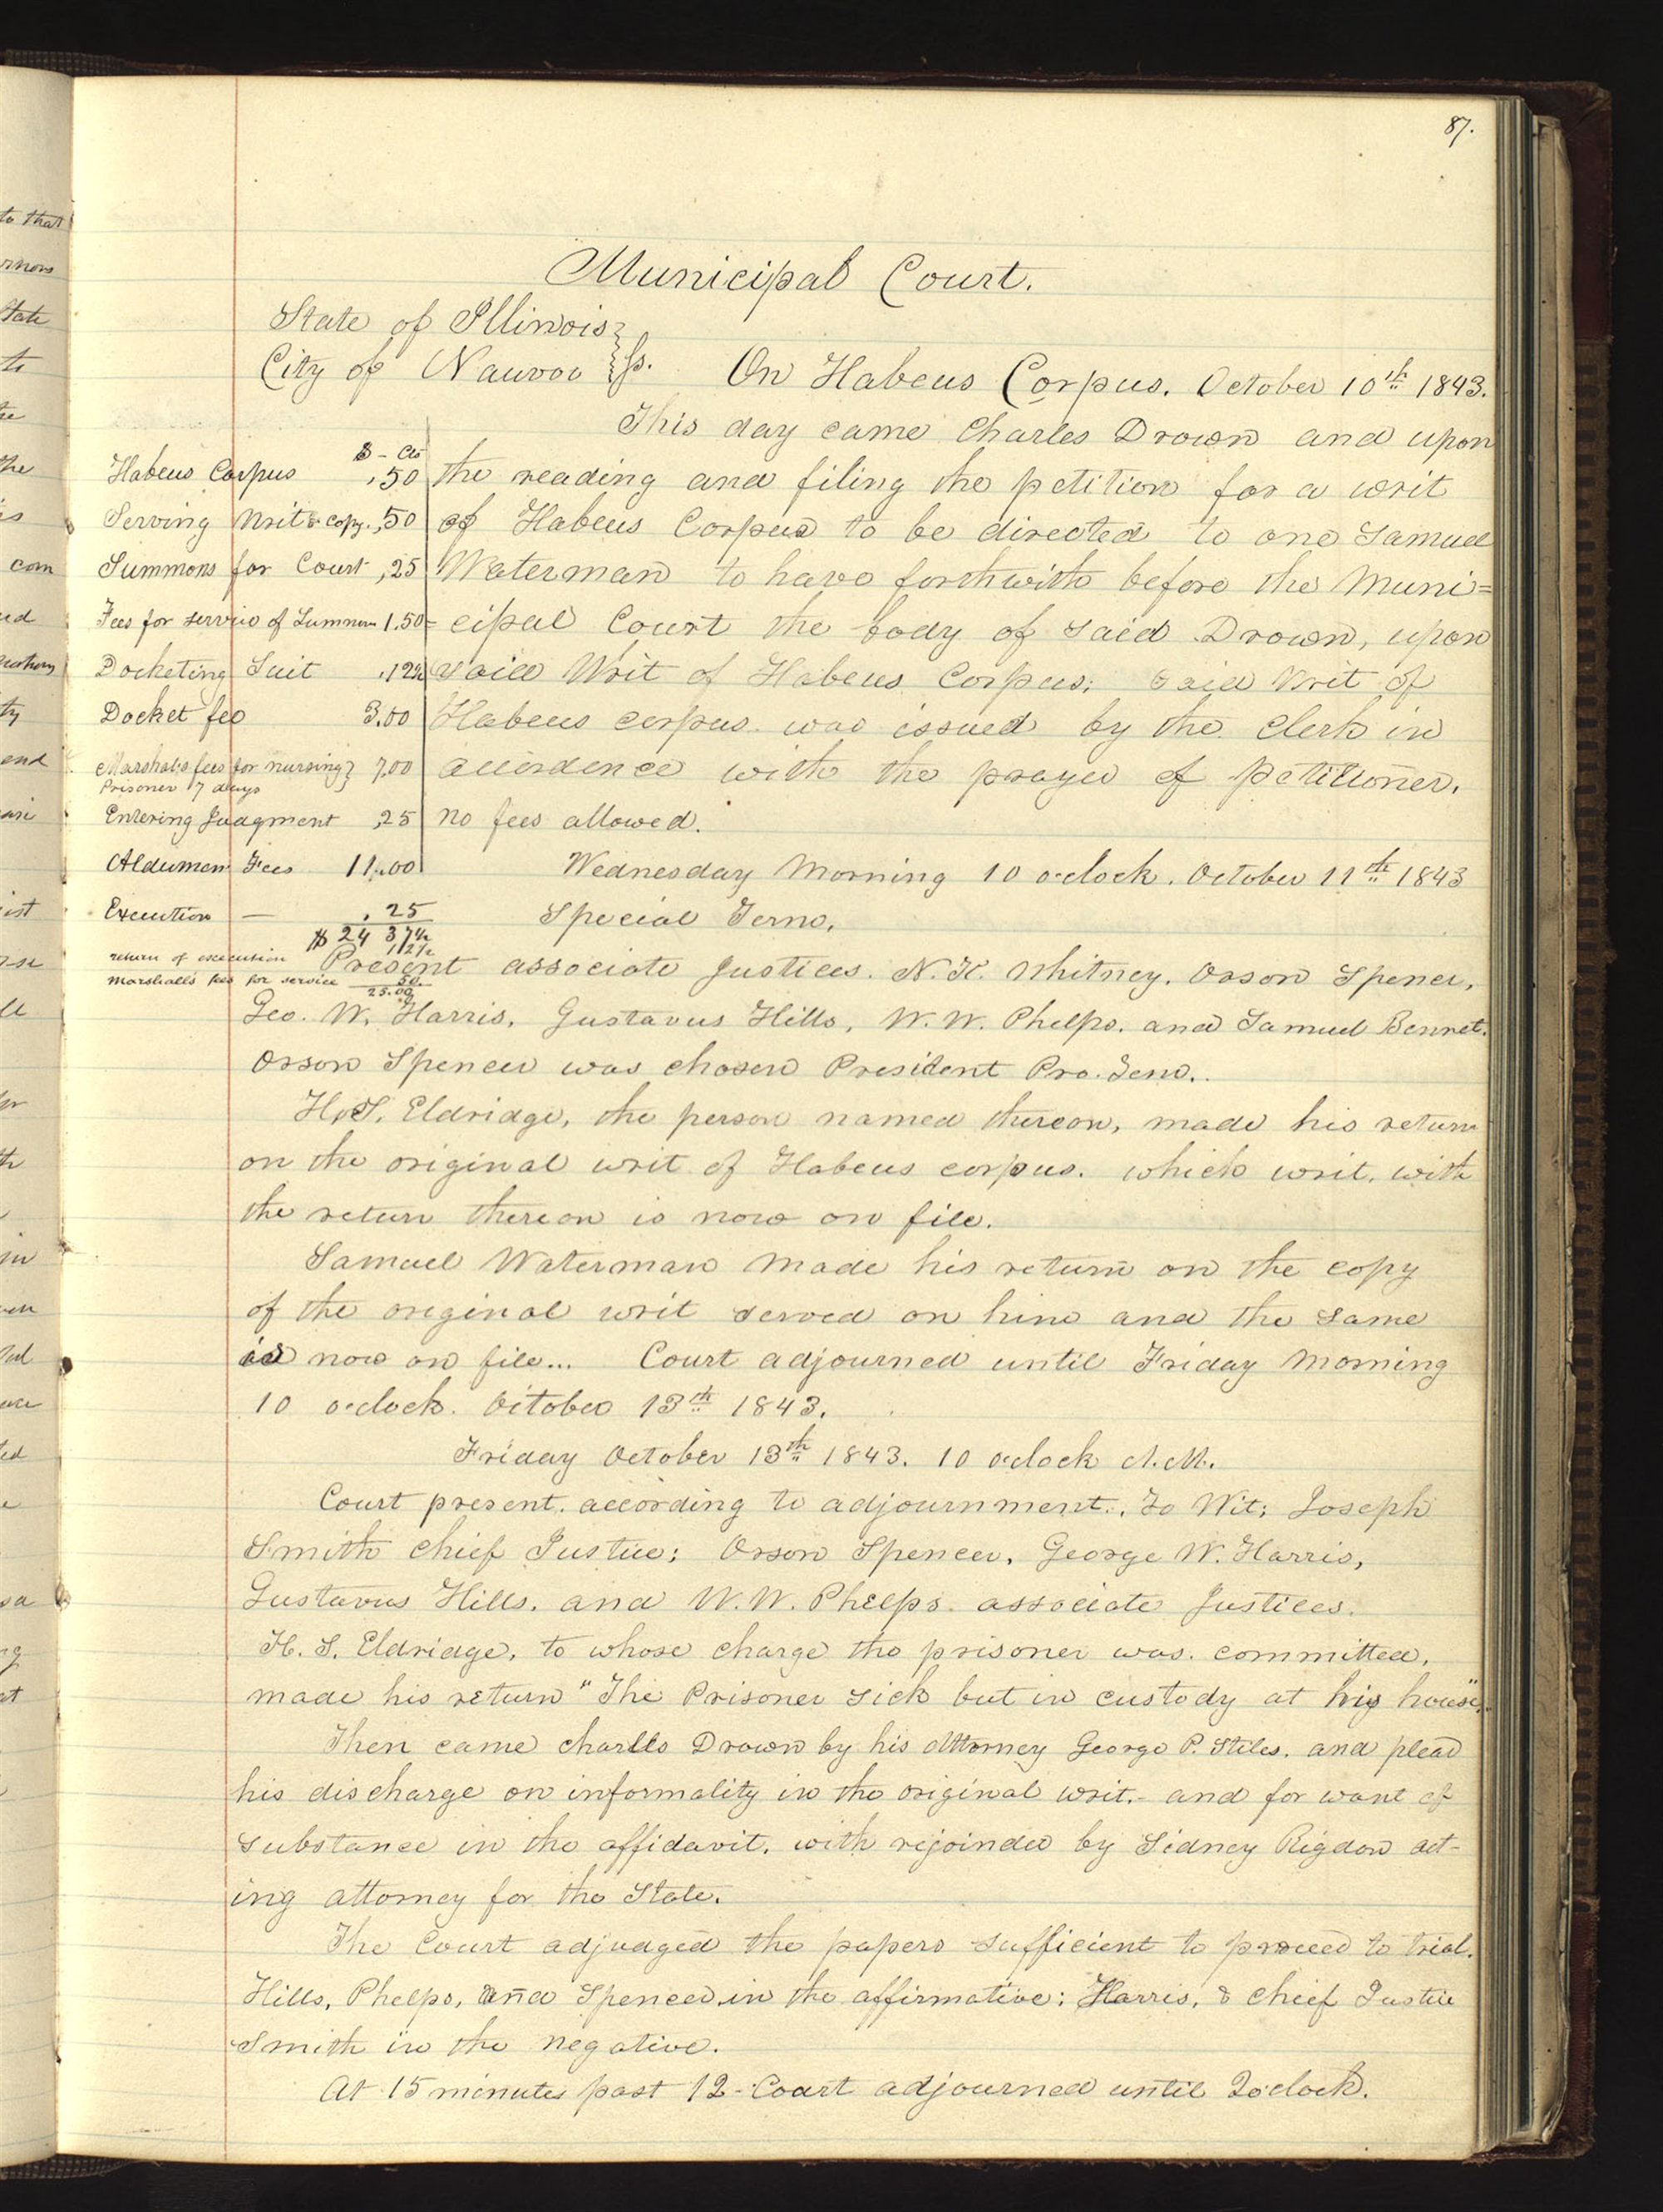 87.
Municipal Court.
State of Illinois
City of Nauvoo } ss. On Habeus Corpus. October 10th 1843.
This day came Charles Drown and upon
the reading and filing the petition for a writ
of Habeus Corpus to be directed to one Samuel
Waterman to have forthwith before the Muni=
cipal Court the body of said Drown, upon
said Writ of Habeus Corpus; said Writ of
Habeus corpus was issued by the Clerk in
accordence with the prayer of Petitioner.
no fees allowed.
$ - Cts
Habeus Corpus ,50
Serving Writ & copy. ,50
Summons for Court ,25
Fees for service of Summon 1.50
Docketing Suit .12½
Docket fee 3.00
Marshals fees for nursing } 7,00
Prisoner 7 days
Entering Judgment ,25
Aldermen Fees 11.00
Execution — .25
$ 24 37½
return of execusion 12½
Marshalls fees for service 50
25.00
Wednesday Morning 10 oclock. October 11th 1843
Special Term.
Present associate Justices. N. K. Whitney, Orson Spencer,
Geo. W. Harris, Gustavus Hills, W. W. Phelps. and Samuel Bennet.
Orson Spencer was chosen President Pro. Tem..
H. S. Eldridge, the person named thereon, made his return
on the original writ of Habeus corpus. which writ, with
the return thereon is now on file.
Samuel Waterman made his return on the copy
of the original writ served on him and the same
is now on file... Court adjourned until Friday Morning
10 oclock. October 13th 1843.
Friday October 13th 1843. 10 oclock A.M.
Court present. according to adjournment., To Wit; Joseph
Smith Chief Justice; Orson Spencer, George W. Harris,
Gustavus Hills. and W. W. Phelps. associate Justices.
H. S. Eldridge, to whose charge the prisoner was. committed,
made his return "The Prisoner sick but in custody at his house".
Then came Charles Drown by his Attorney George P. Stiles. and plead
his discharge on informality in the original writ.- and for want of
substance in the affidavit. with rejoinder by Sidney Rigdon act-
ing attorney for the State.
The Court adjudged the papers sufficient to proceed to trial.
Hills, Phelps, and Spencer, in the affirmative; Harris, & Chief Justice
Smith in the negative.
At 15 minutes past 12 - Court adjourned until 2 oclock.